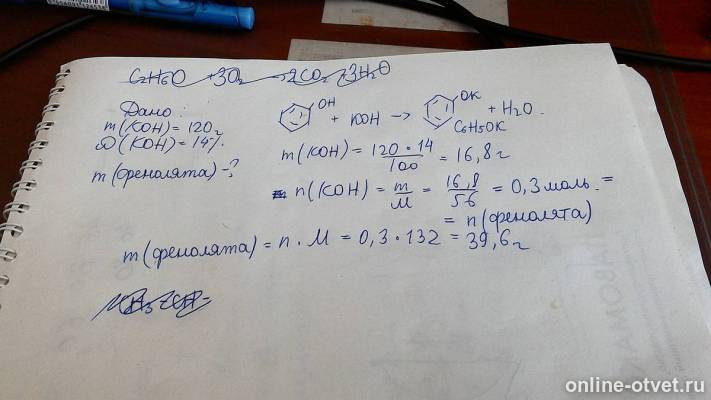 C2H6O + 3O2 → 2CO2 + 3H2O
Дано:
m(KOH) = 120г
ω(KOH) = 14%.
m(фенолята) - ?
OH + KOH → OK + H2O.
C6H5OK
m(KOH) = 120 · 14 / 100 = 16,8 г
n(KOH) = m / M = 16,8 / 56 = 0,3 моль. =
= n(фенолята)
m(фенолята) = n · M = 0,3 · 132 = 39,6 г
online-otvet.ru